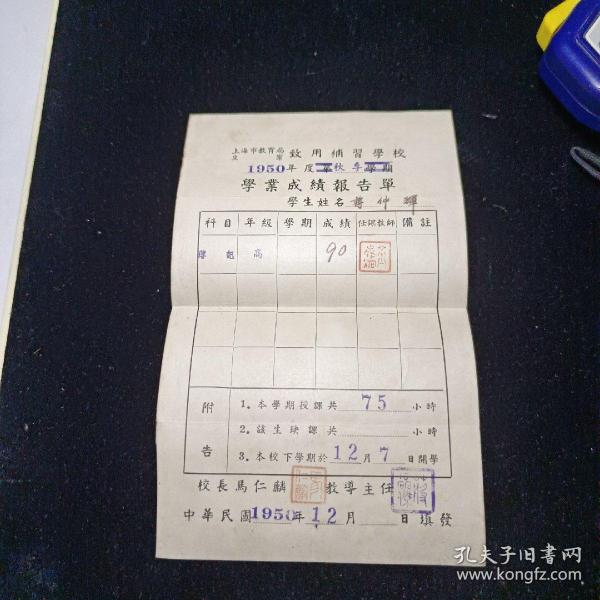 上海市教育局
立案 致用補習學校
1950年度第秋季學期
學業成績報告單
學生姓名 蔣仲輝
科目 年級 學期 成績 任課教師 備註
高 90
附告
1. 本學期授課共 75 小時
2. 該生缺課共 小時
3. 本校下學期於 12 月 7 日開學
校長馬仁麟 教導主任
中華民國1950年12月 日填發
孔夫子旧书网
www.kongfz.com